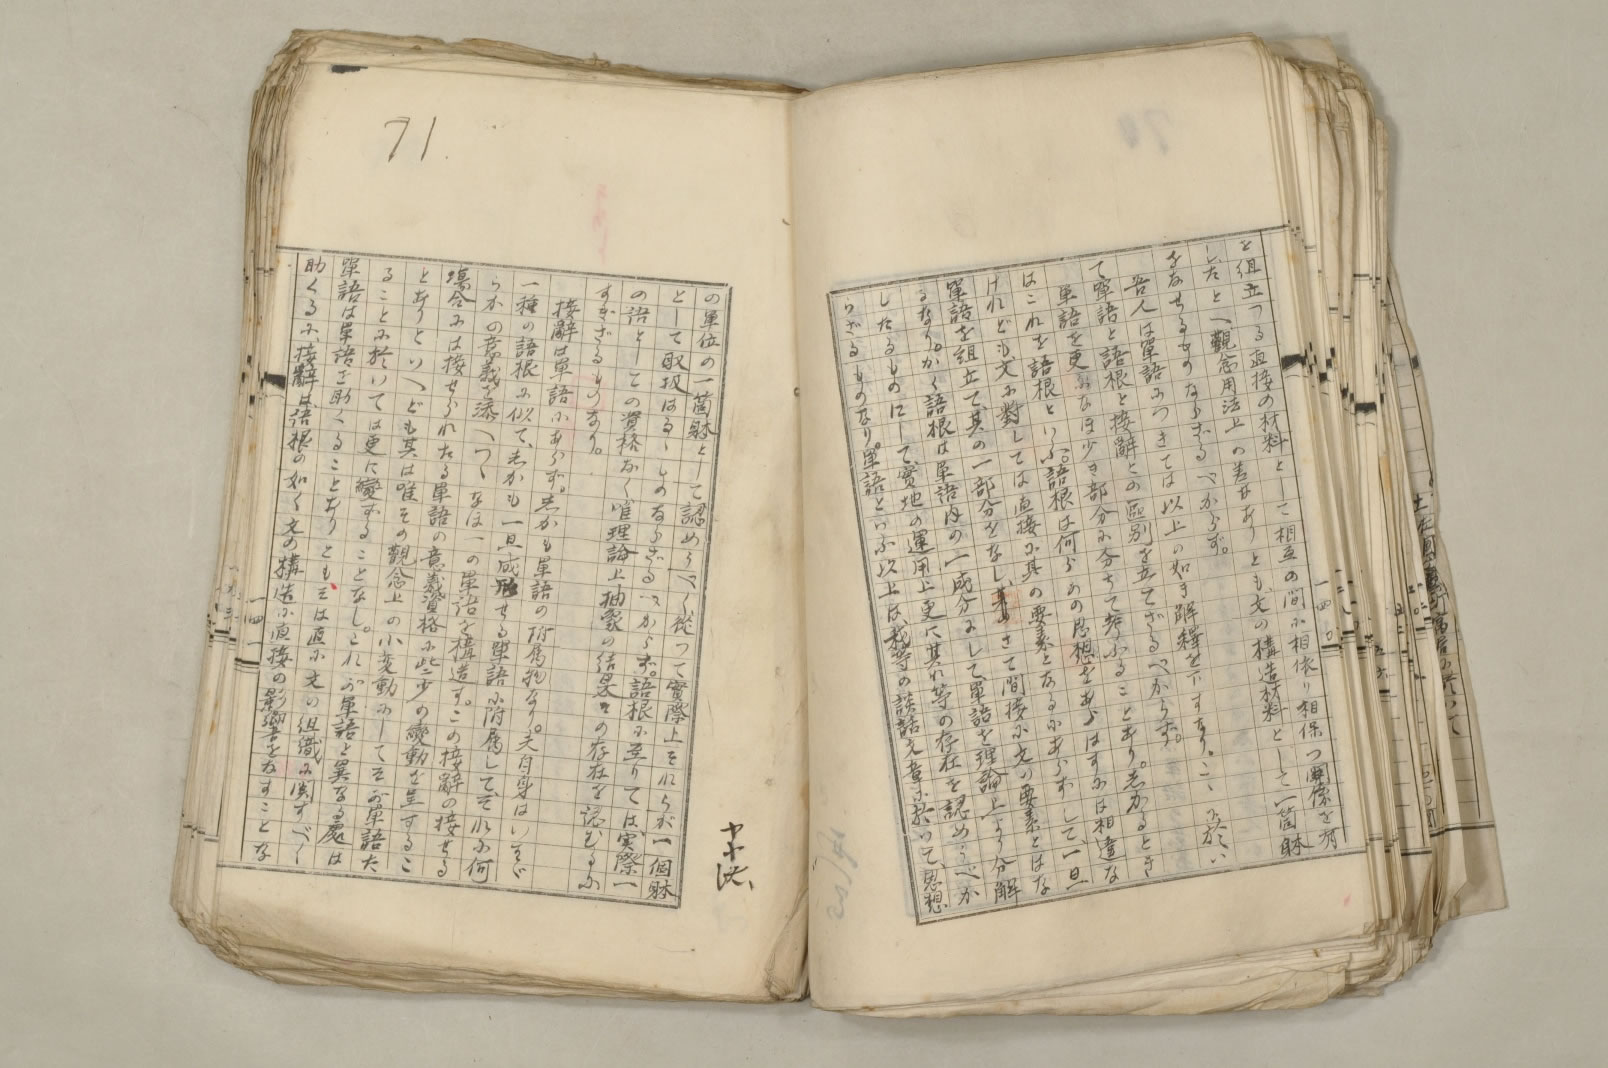 と組立つる直接の材料として相互の間に相依り相保つ関係を有
したとへ観念用法上の差ありとも、文の構造材料として一箇躰
をなせるものならざるべからず。
吾人は單語につきては以上の如き解釋を下すなり、こゝに於い
て單語と語根と接辭との區別を立てざるべからず。
單語を更になほ少き部分に分ちて考ふることあり。しかるとき
はこれを語根といふ。語根は何らかの思想をあらはすには相違な
けれども文に對しては直接に其の要素となるにあらずして、一旦
單語を組立て其の一部分をなし、さて間接に文の要素とはな
るなり。かく語根は單語内の一成分にして單語を理論上より分解
したるものにして實地の運用上更に其れ等の存在を認めうべか
らざるものなり。單語といふ以上は我等の談話文章に於いて、思想
一四〇
71
の單位の一箇躰として認めうべく從つて實際上それらが一個躰
として取扱はるゝものならざるべからず。語根に至りては実際一
の語としての資格なく唯理論上抽象の結果その存在を認むるに
すぎざるものなり。
接辭は單語にあらず。しかも單語の附属物なり。夫自身はいまだ
一種の語根に似て、しかも一旦成せる單語に附属して、それに何
らかの意義を添へつゝなほ一の單語を構造す。この接辭の接せる
場合には接せられたる單語の意義資格に些少の變動を生するこ
とありといへども其は唯その觀念上の小変動にしてそが單語た
ることに於いては更に變ずることなし。これが單語と異なる處は
單語は單語を助くることありともそは直に文の組織に関すべく
助くるに、接辭は語根の如く文の構造に直接の影響をなすことな
一四一